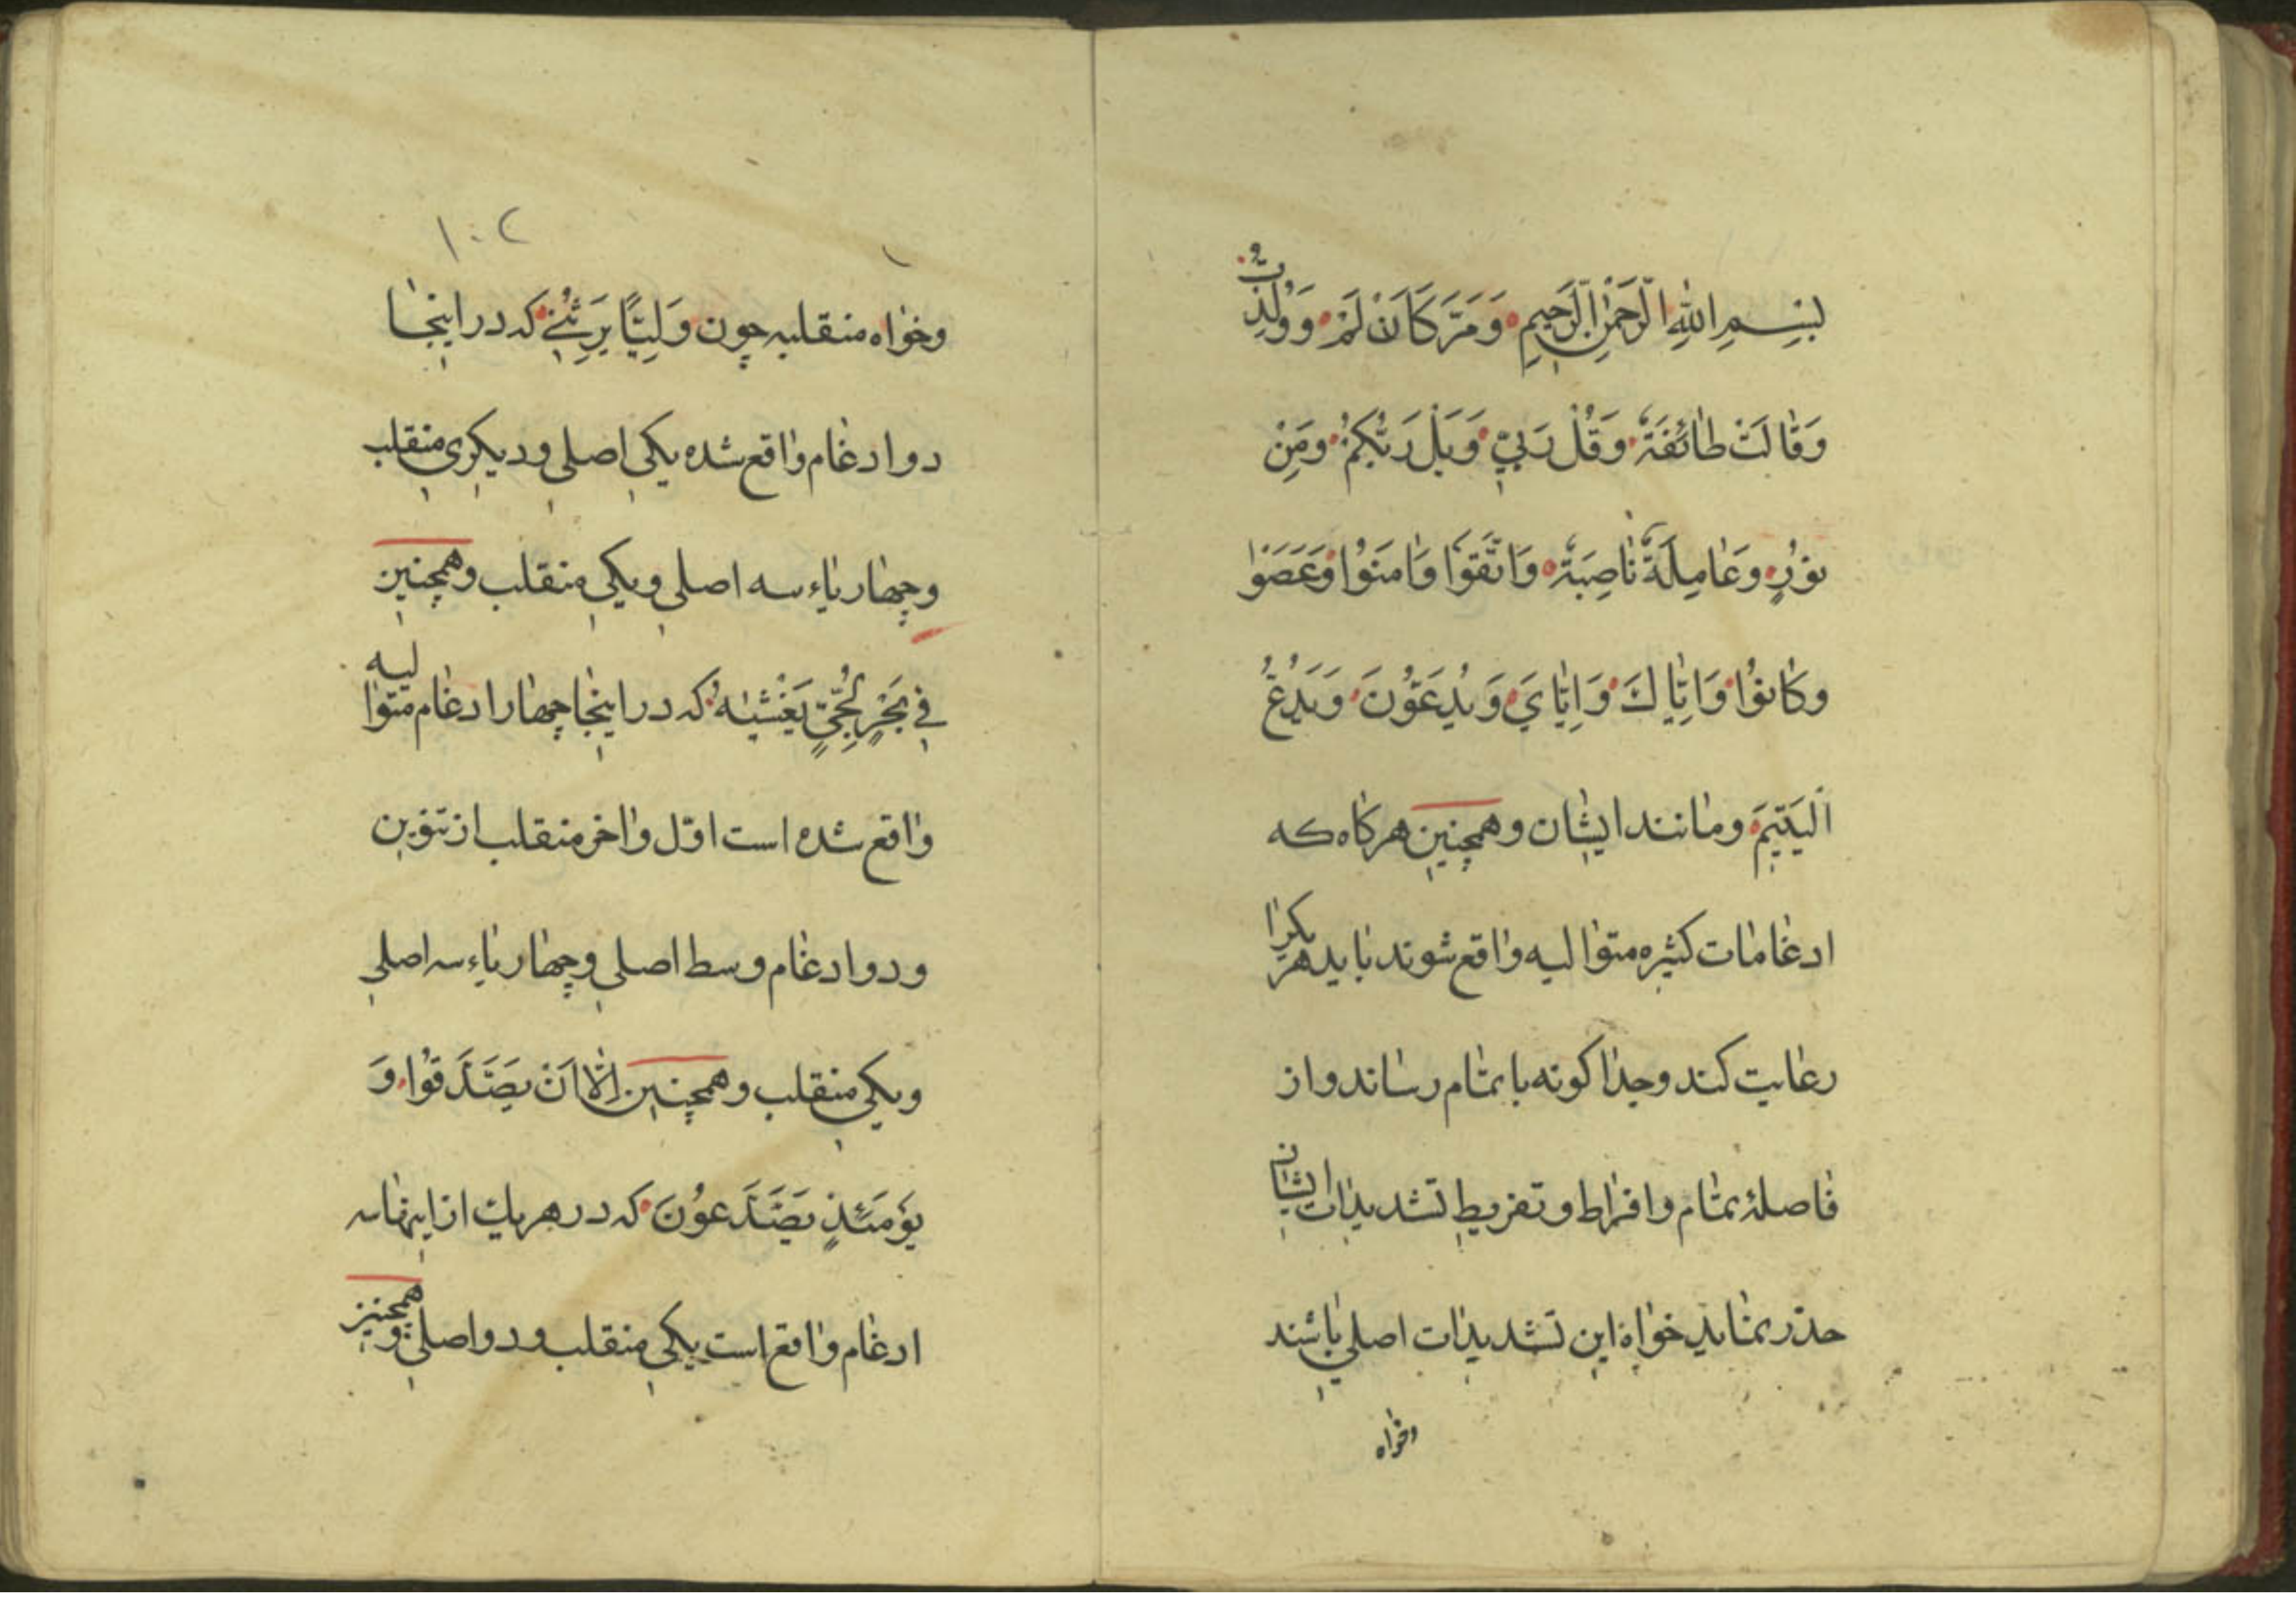 بِسْمِ اللّٰهِ الرَّحْمٰنِ الرَّحِيمِ وَمَرَّ كَاَنْ لَمْ وَ
وَقَالَتْ طَائِفَةٌ وَقُلْ رَبِّي وَبَلْ رَبُّكُمْ وَمِنْ
نُورٍ وَعَامِلَةٌ نَاصِبَةٌ وَاتَّقَوْا وَاٰمَنُوا وَعَصَوْا
وَكَانُوا وَاِيَّاكَ وَاِيَّايَ وَيُدَعُّونَ وَيَدُعُّ
الْيَتِيمَ ومانند ایشان وهمچنین هرکاه که
ادغامات کثیره متوالیه واقع شوند باید هریکرا
رعایت کند وجداکونه باتمام رساند واز
فاصلهٔ تمام وافراط وتفریط تشدیدات ایشان
حذر نماید خواه این تشدیدات اصلی باشند
وخواه
۱۰۲
وخواه منقلبه چون وَلِيًّا يَرِثُنِي که در اینجا
دو ادغام واقع شده یکی اصلی ودیکری منقلب
وچهار یاء سه اصلی ویکی منقلب وهمچنین
فِي بَحْرٍ لُجِّيٍّ يَغْشٰيهُ که در اینجا چهار ادغام متوالیه
واقع شده است اوّل واخر منقلب از تنوین
ودو ادغام وسط اصلی وچهار یاء سه اصلی
ویکی منقلب وهمچنین اِلَّا اَنْ يَصَّدَّقُوا وَ
يَوْمَئِذٍ يَصَّدَّعُونَ که در هریک از اینها سه
ادغام واقع است یکی منقلب ودو اصلی وهمچنین